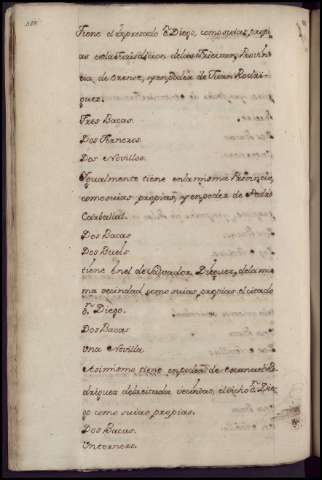 Tiene el expresado Dn. Diego, como suias, propi
as en la Jurisdicion de las Frieiras, Provin
cia, de Orense, y en poder de Juan Rodri
guez.
Tres Bacas.
Dos Terneros.
Dos Novillos.
Ygualmente tiene en la misma Provincia,
como suias propias, y en poder de
Carballal
Dos Bacas
Dos Bueis
tiene en el de Salvador Dieguez, de la mis
ma vecindad como suias propias el citado
Dn. Diego.
Dos Bacas
Una Novilla
Asimismo tiene en poder de Manuel Ro
driguez de la citada vecindad, el dicho Dn. Die
go como suias propias.
Dos Bacas.
Un ternero.